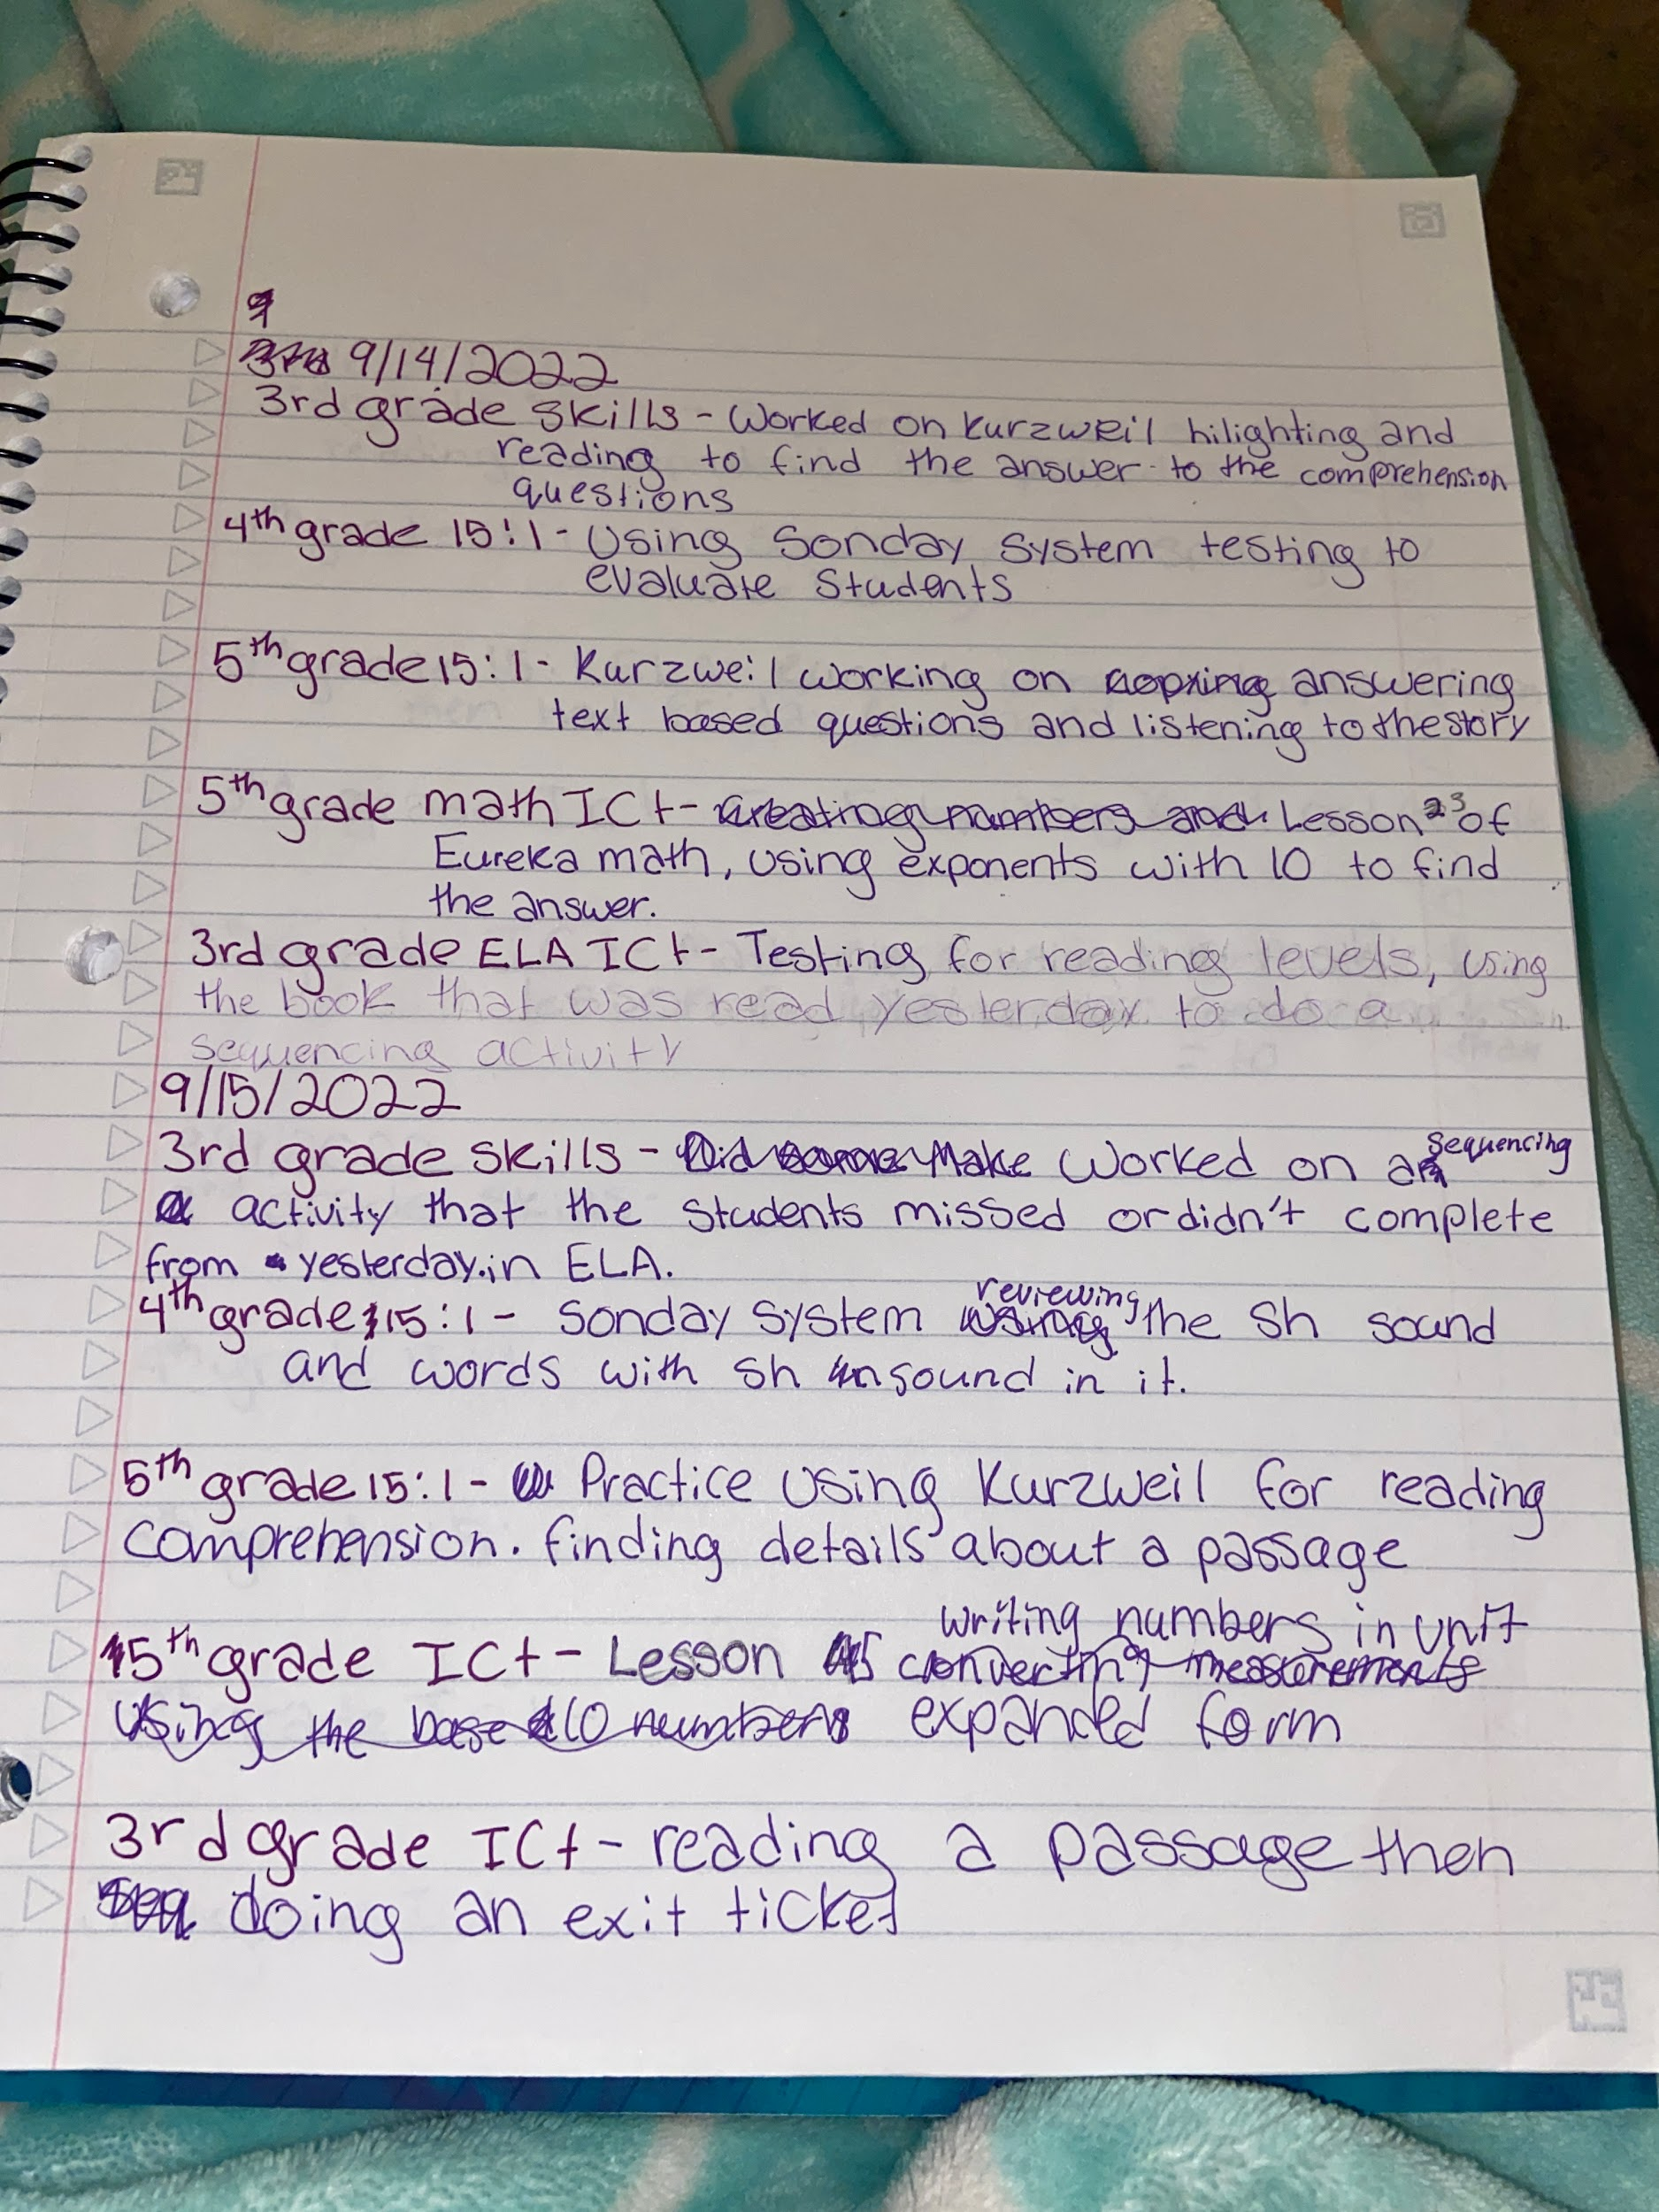 9/14/2022
3rd grade skills - Worked on Kurzweil hilighting and
reading to find the answer to the comprehension
questions
4th grade 15:1 - Using Sonday System testing to
evaluate Students
5th grade 15:1 - Kurzweil working on answering
text based questions and listening to the story
5th grade math ICt - Creating numbers and Lesson 23 of
Eureka math, using exponents with 10 to find
the answer.
3rd grade ELA ICt - Testing for reading levels, using
the book that was read yesterday to do a
sequencing activity
9/15/2022
3rd grade skills - Did some Make Worked on a sequencing
activity that the students missed or didn't complete
from yesterday in ELA.
4th grade 15:1 - Sonday System reviewing the Sh sound
and words with sh sound in it.
5th grade 15:1 - Practice Using Kurzweil for reading
comprehension. finding details about a passage
writing numbers in unit
5th grade ICt - Lesson 5 converting measurements
Using the base 10 numbers expanded form
3rd grade ICt - reading a passage then
doing an exit ticket